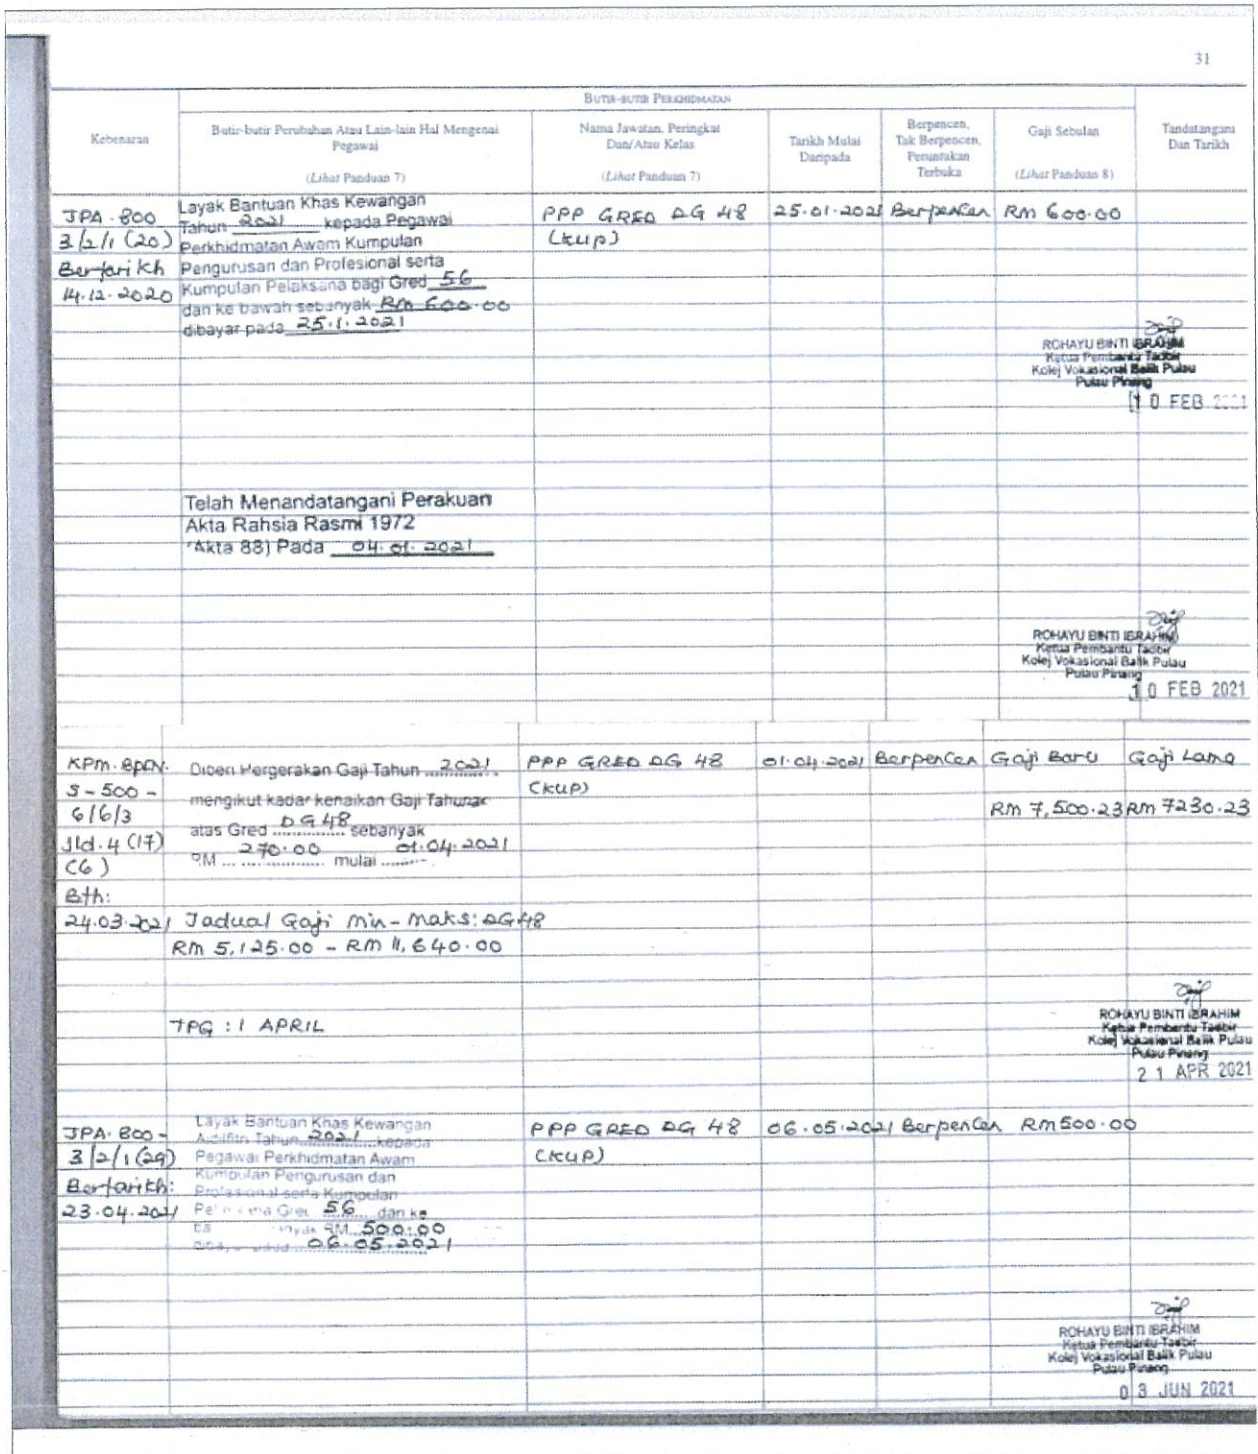 31
BUTIR-BUTIR PERKHIDMATAN
Kebenaran
Butir-butir Perubahan Atau Lain-lain Hal Mengenai Pegawai
(Lihat Panduan 7)
Nama Jawatan, Peringkat Dan/Atau Kelas
(Lihat Panduan 7)
Tarikh Mulai Daripada
Berpencen, Tak Berpencen, Peruntukan Terbuka
Gaji Sebulan
(Lihat Panduan 8)
Tandatangani Dan Tarikh
JPA. 800
3/2/1 (20)
Bertarikh
14.12.2020
Layak Bantuan Khas Kewangan
Tahun 2021 kepada Pegawai
Perkhidmatan Awam Kumpulan
Pengurusan dan Profesional serta
Kumpulan Pelaksana bagi Gred 56
dan ke bawah sebanyak RM 600.00
dibayar pada 25.1.2021
PPP GRED DG 48
(KUP)
25.01.2021
Berpencen
RM 600.00
ROHAYU BINTI IBRAHIM
Ketua Pembantu Tadbir
Kolej Vokasional Balik Pulau
Pulau Pinang
10 FEB 2021
Telah Menandatangani Perakuan
Akta Rahsia Rasmi 1972
(Akta 88) Pada 04.01.2021
ROHAYU BINTI IBRAHIM
Ketua Pembantu Tadbir
Kolej Vokasional Balik Pulau
Pulau Pinang
10 FEB 2021
KPM.BPSV.
S-500-
6/6/3
Jld.4 (17)
(6)
Bth:
24.03.2021
Diberi Pergerakan Gaji Tahun 2021
mengikut kadar kenaikan Gaji Tahunan
atas Gred DG48 sebanyak
RM 270.00 mulai 01.04.2021
Jadual Gaji Min-Maks: DG48
RM 5,125.00 - RM 11,640.00
TPG : 1 APRIL
PPP GRED DG 48
(KUP)
01.04.2021
Berpencen
Gaji Baru
RM 7,500.23
Gaji Lama
RM 7230.23
ROHAYU BINTI IBRAHIM
Ketua Pembantu Tadbir
Kolej Vokasional Balik Pulau
Pulau Pinang
21 APR 2021
JPA. 800-
3/2/1 (29)
Bertarikh:
23.04.2021
Layak Bantuan Khas Kewangan
Aidilfitri Tahun 2021 kepada
Pegawai Perkhidmatan Awam
Kumpulan Pengurusan dan
Profesional serta Kumpulan
Pelaksana Gred 56 dan ke
RM 500.00
06.05.2021
PPP GRED DG 48
(KUP)
06.05.2021
Berpencen
RM500.00
ROHAYU BINTI IBRAHIM
Ketua Pembantu Tadbir
Kolej Vokasional Balik Pulau
Pulau Pinang
03 JUN 2021